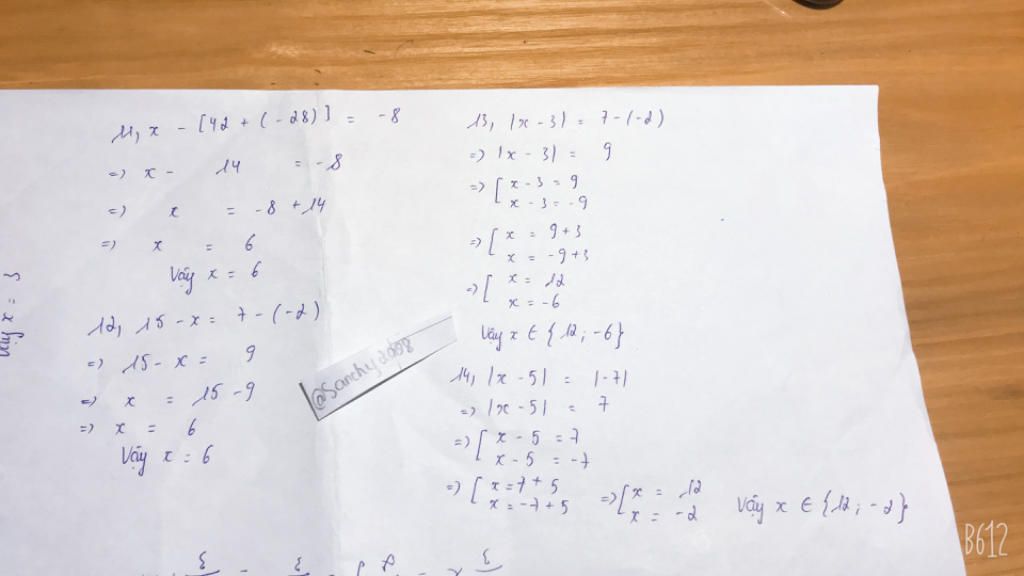 11, x - [42 + (-28)] = -8
=> x - 14 = -8
=> x = -8 + 14
=> x = 6
Vậy x = 6
12, 15 - x = 7 - (-2)
=> 15 - x = 9
=> x = 15 - 9
=> x = 6
Vậy x = 6
13, |x - 3| = 7 - (-2)
=> |x - 3| = 9
=> [ x - 3 = 9
x - 3 = -9
=> [ x = 9 + 3
x = -9 + 3
=> [ x = 12
x = -6
Vậy x ∈ {12; -6}
14, |x - 5| = |-7|
=> |x - 5| = 7
=> [ x - 5 = 7
x - 5 = -7
=> [ x = 7 + 5 => [ x = 12
x = -7 + 5 x = -2 Vậy x ∈ {12; -2}
Vậy x = 3
B612